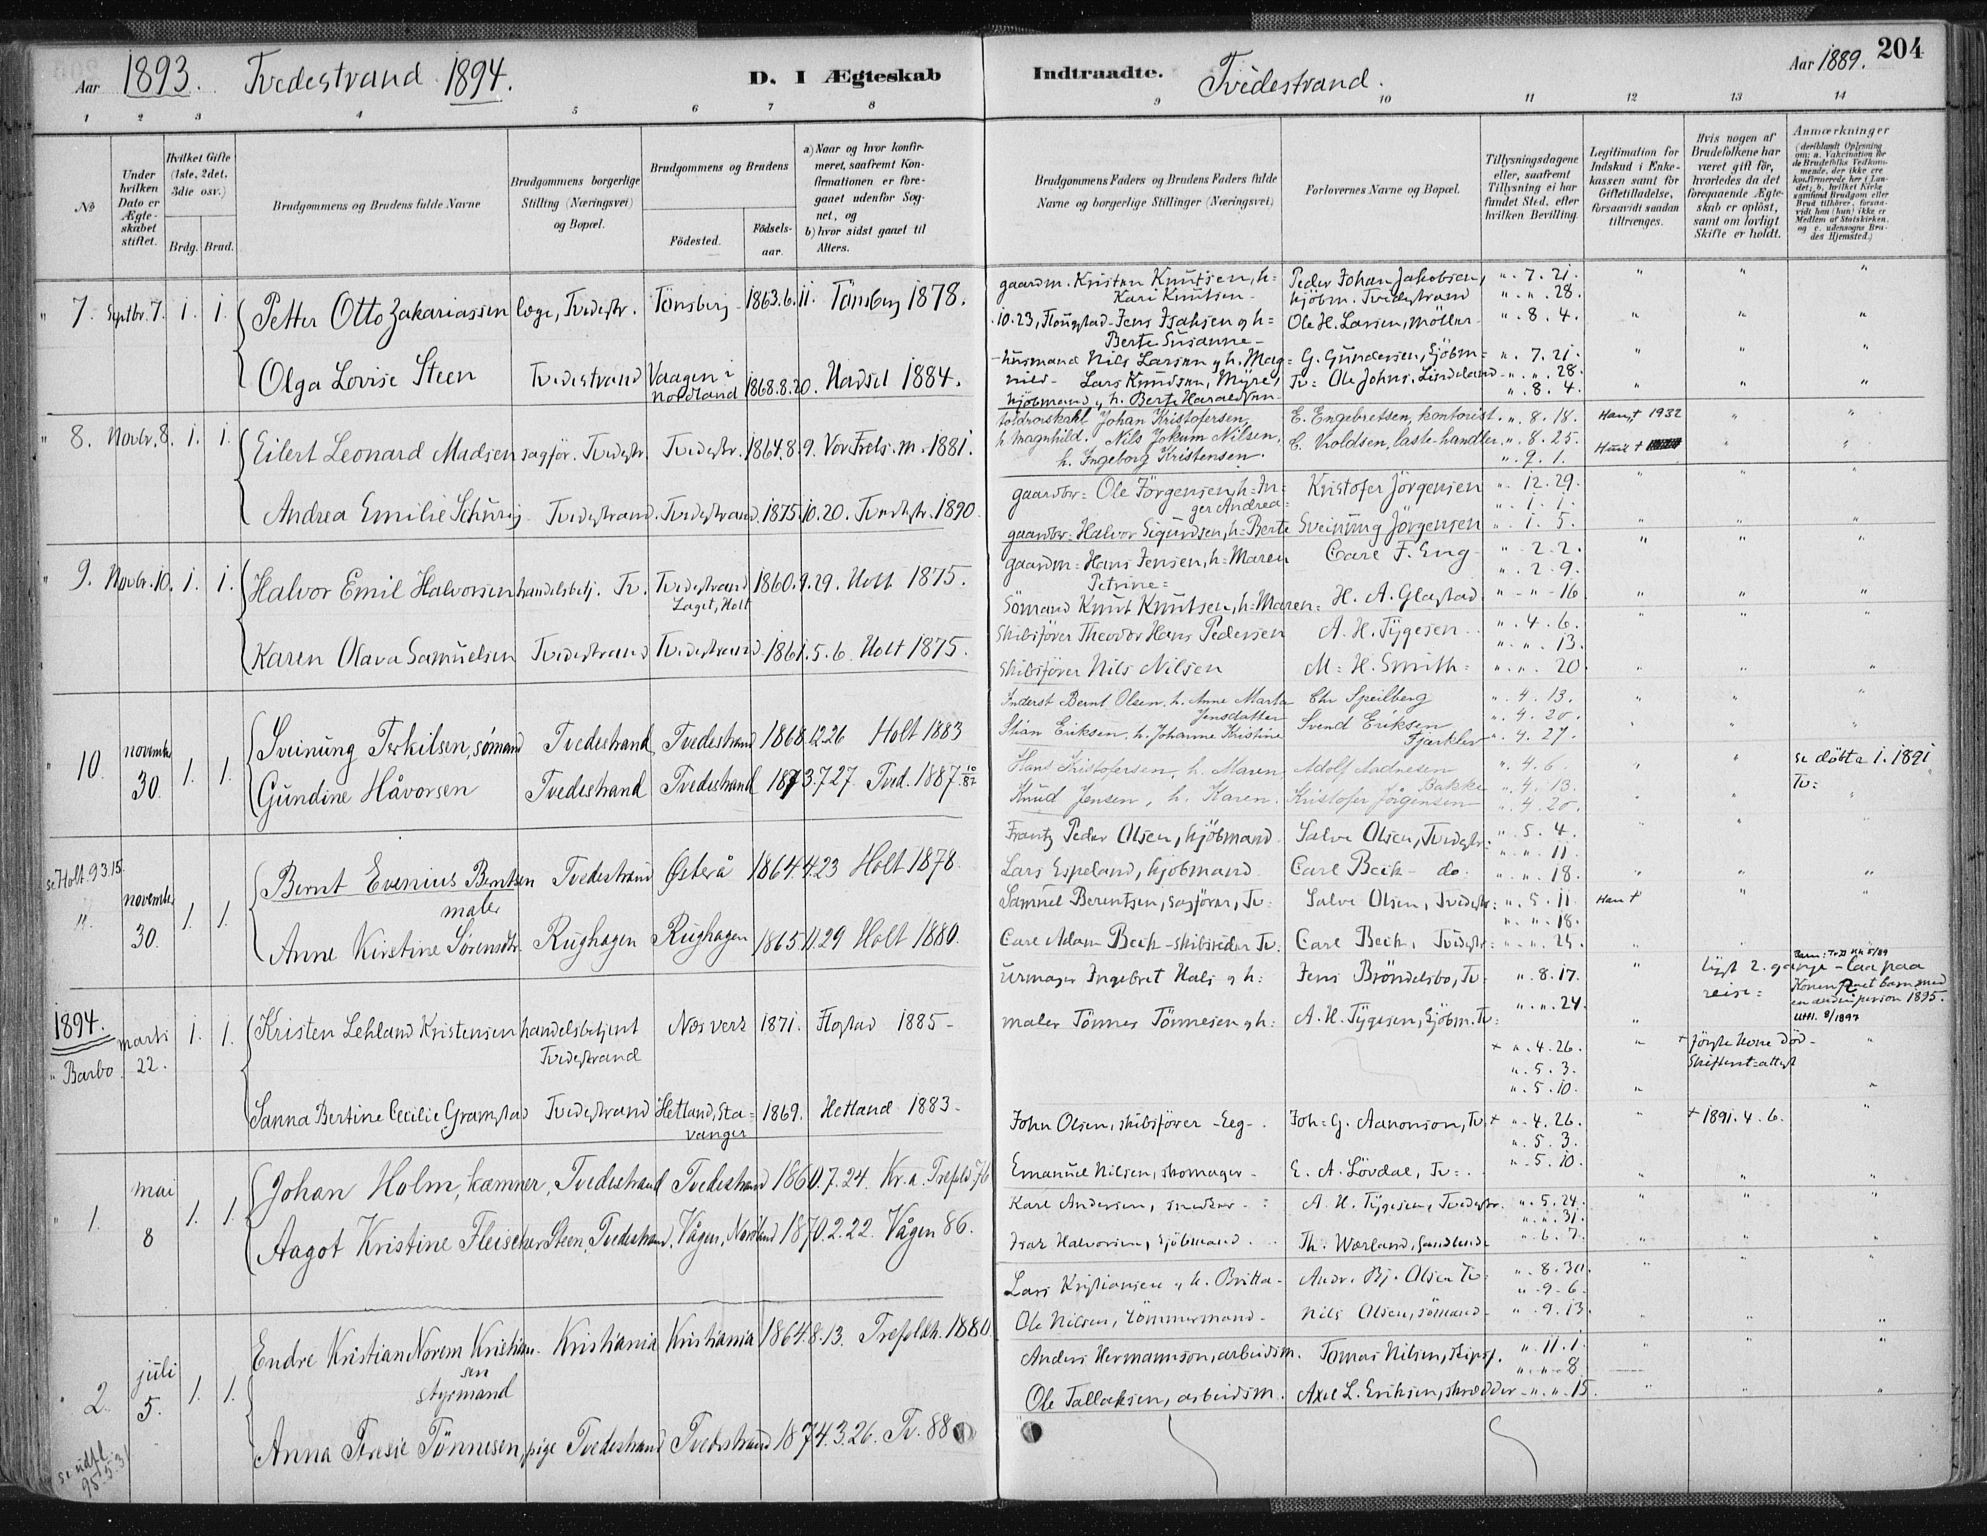 Aar 1893. Tvedestrand 1894. D. I Ægteskab
1 2 3 4 5 6 7 8
No
Under hvilken Dato er Ægteskabet stiftet.
Hvilket Gifte (1ste, 2det, 3die osv.)
Brdg. Brud.
Brudgommens og Brudens fulde Navne
Brudgommens borgerlige Stilling (Næringsvei) og Bopæl.
Brudgommens og Brudens
Födested. Födsels-aar.
a) Naar og hvor konfirmeret, saafremt Konfirmationen er foregaaet udenfor Sognet, og
b) hvor sidst gaaet til Alters.
" 7. Septbr. 7. 1. 1. Petter Otto Zakariassen læge, Tvedestr. Tönsberg 1863.6.11. Tönsberg 1878.
Olga Lovise Steen Tvedestrand Vaagen i Nordland 1868.8.20. Hadsel 1884.
" 8. Novbr. 8. 1. 1. Eilert Leonard Madsen sagför. Tvedestr. Tvedestr. 1864.8.9. Vor Frels. m. 1881.
Andrea Emilie Schürig Tvedestrand. Tvedestrand. 1875.10.20. Tvedestr. 1890.
" 9. Novbr. 10. 1. 1. Halvor Emil Halvorsen handelsbetj. Tv. Tvedestrand Laget, Holt 1860.9.29. Holt 1875.
Karen Olava Samuelsen Tvedestrand Tvedestrand. 1861.5.6. Holt 1875.
" 10. november 30. 1. 1. Sveinung Terkilsen, sømand Tvedestrand Tvedestrand 1868.12.26 Holt 1883
Gundine Håvorsen Tvedestrand Tvedestrand 1873.7.27. Tved. 1887.
se Holt 93.15.
11. november 30. 1. 1. Bernt Evenius Berntsen maler Tvedestrand Østerå 1864.4.23 Holt 1878.
Anne Kirstine Sørensdtr. Rughagen Rughagen 1865.11.29 Holt 1880.
1894.
" Barbo marts 22. 1. 1. Kristen Lehland Kristensen handelsbetjent Tvedestrand Næs verk 1871. Flostad 1885 -
Sanna Bertine Cecilie Gramstad Tvedestrand Hetland, Stavanger 1869. Hetland 1883 -
" 1. mai 8 1. 1. Johan Holm, kæmner, Tvedestrand Tvedestrand 1860.7.24. Kr.a. Trefold. 76
Aagot Kristine Fleischer Steen, Tvedestrand, Vågen, Nordland 1870.2.22. Vågen 86.
" 2. juli 5. 1. 1. Endre Kristian Norem Kristiansen styrmand Kristiania Kristiania 1864.8.13. Trefoldh. 1880.
Anna Teresie Tönnesen, pige Tvedestrand Tvedestrand 1874.3.26. Tv. 88
se udfl. 95.5.31
Indtraadte. Tvedestrand. Aar 1889. 204
9 10 11 12 13 14
Brudgommens Faders og Brudens Faders fulde Navne og borgerlige Stillinger (Næringsvei)
Forlovernes Navne og Bopæl.
Tillysningsdagene eller, saafremt Tillysning ei har fundet Sted, efter hvilken Bevilling.
Legitimation for Indskud i Enkekassen samt for Giftetilladelse, forsaavidt saadan tiltrænges.
Hvis nogen af Brudefolkene har været gift för, hvorledes da det foregaaende Ægteskab er oplöst, samt om lovligt Skifte er holdt.
Anmærkninger (deriblandt Oplysning om: a. Vakcination for de Brudefolks Vedkommende, der ikke ere konfirmerede her i Landet; b. hvilket Kirkesamfund Brudgom eller Brud tilhörer, forsaavidt han (hun) ikke er Medlem af Statskirken, og c. udensogns Brudes Hjemsted.)
gaardm. Kristen Knutsen, h= Kari Knutsen - Peder Johan Jakobsen, kjöbm. Tvedestrand ". 7. 21. ". ". 28.
10.23, Flougstad - Jens Isaksen & h= Berte Susanne - Ole H. Larsen, Möller ". 8. 4.
- husmand Nils Larsen & h. Magnild - G. Gundersen, Sjöbm = ". 7. 21. ". ". 28.
Lars Knudsen, Myre, kjöbmand & h. Berte Haraldsen Tv: Ole Johns. Lindeland ". 8. 4.
toldroskahl Johan Kristofersen, h. Magnhild. E. Engebretsen, kontorist. ". 8. 18. Han † 1932
Nils Jokum Nilsen, h. Ingeborg Kristensen. ". 8. 25. Hun †
". 9. 1.
gaardbr= Ole Jörgensen, h= Inger Andrea= Kristofer Jörgensen ". 12. 29. ". 1. 1.
gaardbr= Halvor Sigurdsen, h= Berte Sveinung Jörgensen ". 1. 5.
gaardm= Hans Jensen, h= Maren Petrine= Carl F. Eng ". 2. 2. ". 2. 9.
Sömand Knut Knutsen, h= Maren= H. A. Glastad " - " - 16
Skibsförer Theodor Hans Pedersen A. H. Tygesen ". 4. 6. ". ". 13.
Skibsförer Nils Nilsen M= H. Smith= ". ". 20
Inderst Bernt Olsen, h. Anne Marta Jensdatter Chr Speilberg ". 4. 13. ". 4. 20.
Stian Eriksen, h. Johanne Kristine Svend Eriksen Fjærkleiv ". 4. 27.
Hans Kristofersen, h. Maren Adolf Aadnesen Bakke ". 4. 6. se döbte 1. 1891 Tv:
Knud Jensen, h. Karen. Kristofer Jörgensen ". 4. 13. ". 4. 20.
Frantz Peder Olsen, kjöbmand Salve Olsen, Tvedestr: ". 5. 4. ". ". 11.
Lars Espeland, kjöbmand Carl Beck - do. ". ". 18.
Samuel Berentsen, sagförer, Tv: Salve Olsen, Tvedestr: ". 5. 11. Han † ". ". 18.
Carl Adam Beck - skibsreder Tv: Carl Beck, Tvedestr: ". ". 25.
urmager Ingebret Hals & h: Jens Bröndelsbo, Tv: ". 8. 17. lyst 2. gange - laa paa reise:
maler Tönnes Tönnesen & h: A. H. Tygesen, Sjöbm. Tv: ". ". 24. Konen barn med en anden person 1895.
+ ". 4. 26. + förste kone död - Skifteret=attest
". 5. 3.
". 5. 10.
John Olsen, skibsförer - Eeg - Joh= G. Aanonson, Tv. + ". 4. 26. + 1891. 4. 6.
". 5. 3.
Emanuel Nilsen, skomager - E. A. Lövdal, Tv: ". 5. 10.
Karl Andersen, snedker - : A. H. Tygesen, Tvedestr. ". 5. 24. ". ". 31.
Isak Halvorsen, Sjöbmand. Th. Wærland, ". 6. 7.
Lars Kristiansen & h. Britta - Andr. Bj. Olsen Tv: ". 8. 30. ". 9. 6.
Ole Nilsen, tömmermand - Nils Olsen, sömand - ". 9. 13.
Anders Hermannson, arbeidsm. Tomas Nilsen, ". 11. 1. ". ". 8
Ole Tallaksen, arbeidsm. Axel L. Eriksen, skrædder - ". ". 15.